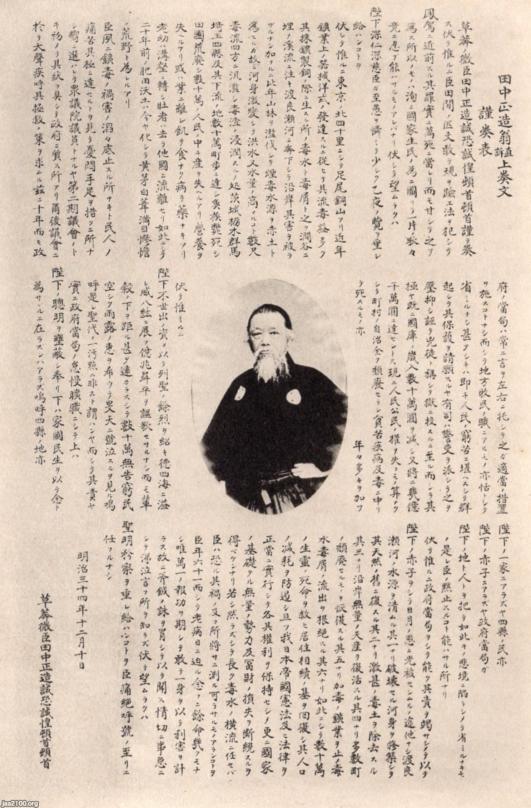 田中正造翁直訴上奏文
謹奏表
草莽ノ微臣田中正造誠恐誠惶頓首頓首謹テ奏
ス伏テ惟ルニ臣田間ノ匹夫敢テ規ヲ踰エ法ヲ犯シテ
鳳駕ニ近前スル其罪實ニ萬死ニ當レリ而モ甘シテ之ヲ
為ス所以ノモノハ洵ニ國家生民ノ為ニ圖リテ一片ノ耿々
竟ニ忍フ能ハサルモノアレハナリ伏シテ望ムラクハ
陛下深仁深慈臣カ至愚ヲ憐ミテ少シク乙夜ノ覽ヲ垂レ
給ハンコトヲ
伏シテ惟ルニ東京ノ北四十里ニシテ足尾銅山アリ近年
鑛業上ノ器械洋式ノ發達スルニ從ヒテ其流毒益々多ク
其採鑛製銅ノ際ニ生スル所ノ毒水ト毒屑ト之ヲ澗谷ニ
埋メ溪流ニ注キ渡良瀬河ニ奔下シテ沿岸其害ヲ被ラ
サルナシ加フルニ比年山林ヲ濫伐シ煙毒水源ヲ赤土ト
為セルカ故ニ河身激變シテ洪水又水量ノ高マルコト數尺
毒流四方ニ汎濫シ毒渣ノ浸潤スルノ処茨城栃木群馬
埼玉四縣及其下流ノ地數萬町歩ニ達シ魚族斃死シ
田園荒廢シ數十萬ノ人民ノ中チ産ヲ失ヘルアリ營養ヲ
失ヘルアリ或ハ業ニ離レ飢テ食ナク病テ藥ナキアリ
老幼ハ溝壑ニ轉シ壯者ハ去テ他國ニ流離セリ如此ニシテ
二十年前ノ肥田沃土ハ今ヤ化シテ黄茅白葦滿目惨憺
ノ荒野ト為レルアリ
臣夙ニ鑛毒ノ禍害ノ滔々底止スル所ナキト民人ノ
痛苦其極ニ達セルトヲ見テ憂悶手足ヲ措クニ所ナ
シ嚮ニ選ハレテ衆議院議員トナルヤ第二期議會ノト
キ初メテ其状ヲ具シテ政府ニ質ス所アリ爾後議會ニ
於テ大聲疾呼其拯救ノ策ヲ求ムル茲ニ十年而モ政
府ノ當局ハ常ニ言ヲ左右ニ托シテ之カ適當ノ措置
ヲ施スコトナシ而シテ地方牧民ノ職ニアルモノ亦恬トシテ
省ミルナシ甚シキハ即チ人民ノ窮苦ニ堪ヘスシテ群
起シテ其保護ヲ請願スルヤ有司ハ警吏ヲ派シテ之ヲ
壓抑シ誣テ兇徒ト稱シテ獄ニ投スルニ至ル而シテ其
極ヤ既ニ國庫ノ歳入數十萬圓ヲ減シ又將ニ幾億
千萬圓ニ達セントス現ニ人民公民ノ權ヲ失フモノ算ナク
シテ町村ノ自治全ク頽廢セラレ貧苦疾病及ヒ毒ニ中リ
テ死スルモノ亦
年々多キヲ加フ
伏テ惟ルニ
陛下不世出ノ資ヲ以テ列聖ノ餘烈ヲ紹キ德四海ニ溢
レ威八紘ニ展フ億兆昇平ヲ謳歌セサルナシ而モ輦
轂ノ下ヲ距ル甚タ遠カラスシテ數十萬無告ノ窮民
空シク雨露ノ恩ヲ希フテ昊天ニ號泣スルヲ見ル嗚
呼是レ聖代ノ一汚點ニ非スト謂ハンヤ而シテ其責ヤ
實ニ政府當局ノ怠慢曠職ニシテ上ハ
陛下ノ聰明ヲ壅蔽シ奉リ下ハ家國民生ヲ以テ念ト
為サルニ在ラスンハアラス嗚呼四縣ノ地亦
陛下ノ一家ニアラスヤ四縣ノ民亦
陛下ノ赤子ニアラスヤ政府當局カ
陛下ノ地ト人トヲ把テ如此キノ悲境ニ陷ラシメテ省ミルナキモノ
是レ臣ノ黙止スルコト能ハサル所ナリ
伏シテ惟ルニ政府當局ヲシテ能ク其責ヲ竭サシメ以テ
陛下ノ赤子ヲシテ日月ノ恩ニ光被セシムルノ途他ナシ渡良
瀬河ノ水源ヲ清ムル其一ナリ破壞セル河身ヲ修築シテ
其天然ノ舊ニ復スル其二ナリ激甚ノ毒土ヲ除去スル
其三ナリ沿岸無量ノ天産ヲ復活スル其四ナリ多數町村
ノ頽廢セルモノヲ恢復スル其五ナリ加毒ノ鑛業ヲ止メ毒
水毒屑ノ流出ヲ根絶スル其六ナリ如此シテ數十萬
ノ生靈ノ死命ヲ救ヒ居住相續ノ基ヲ回復シ其人口
ノ減耗ヲ防遏シ且ツ我日本帝國憲法及ヒ法律ヲ
正當ニ實行シテ各其權利ヲ保持セシメ更ニ國家
ノ基礎タル無量ノ勢力及富財ノ損失ヲ斷絶スルヲ
得ヘケンヤ若シ然ラスシテ長ク毒水ノ横流ニ任セハ
臣ハ恐ル其禍ノ及フ所將サニ測ル可ラサルモノアランコトヲ
臣年六十一而シテ老病日ニ迫ル念フニ餘命幾クモナ
シ唯萬一ノ報効ヲ期シテ敢テ一身ヲ以テ利害ヲ計
ラス故ニ斧鉞ノ誅ヲ冒シテ以テ聞ス情切ニ事急ニ
シテ涕泣言フ所ヲ知ラス伏テ望ムラクハ
聖明矜察ヲ垂レ給ハンコトヲ臣痛絶呼號ノ至リニ
任フルナシ
明治三十四年十二月十日
草莽微臣田中正造誠恐誠惶頓首頓首
jaa2100.org